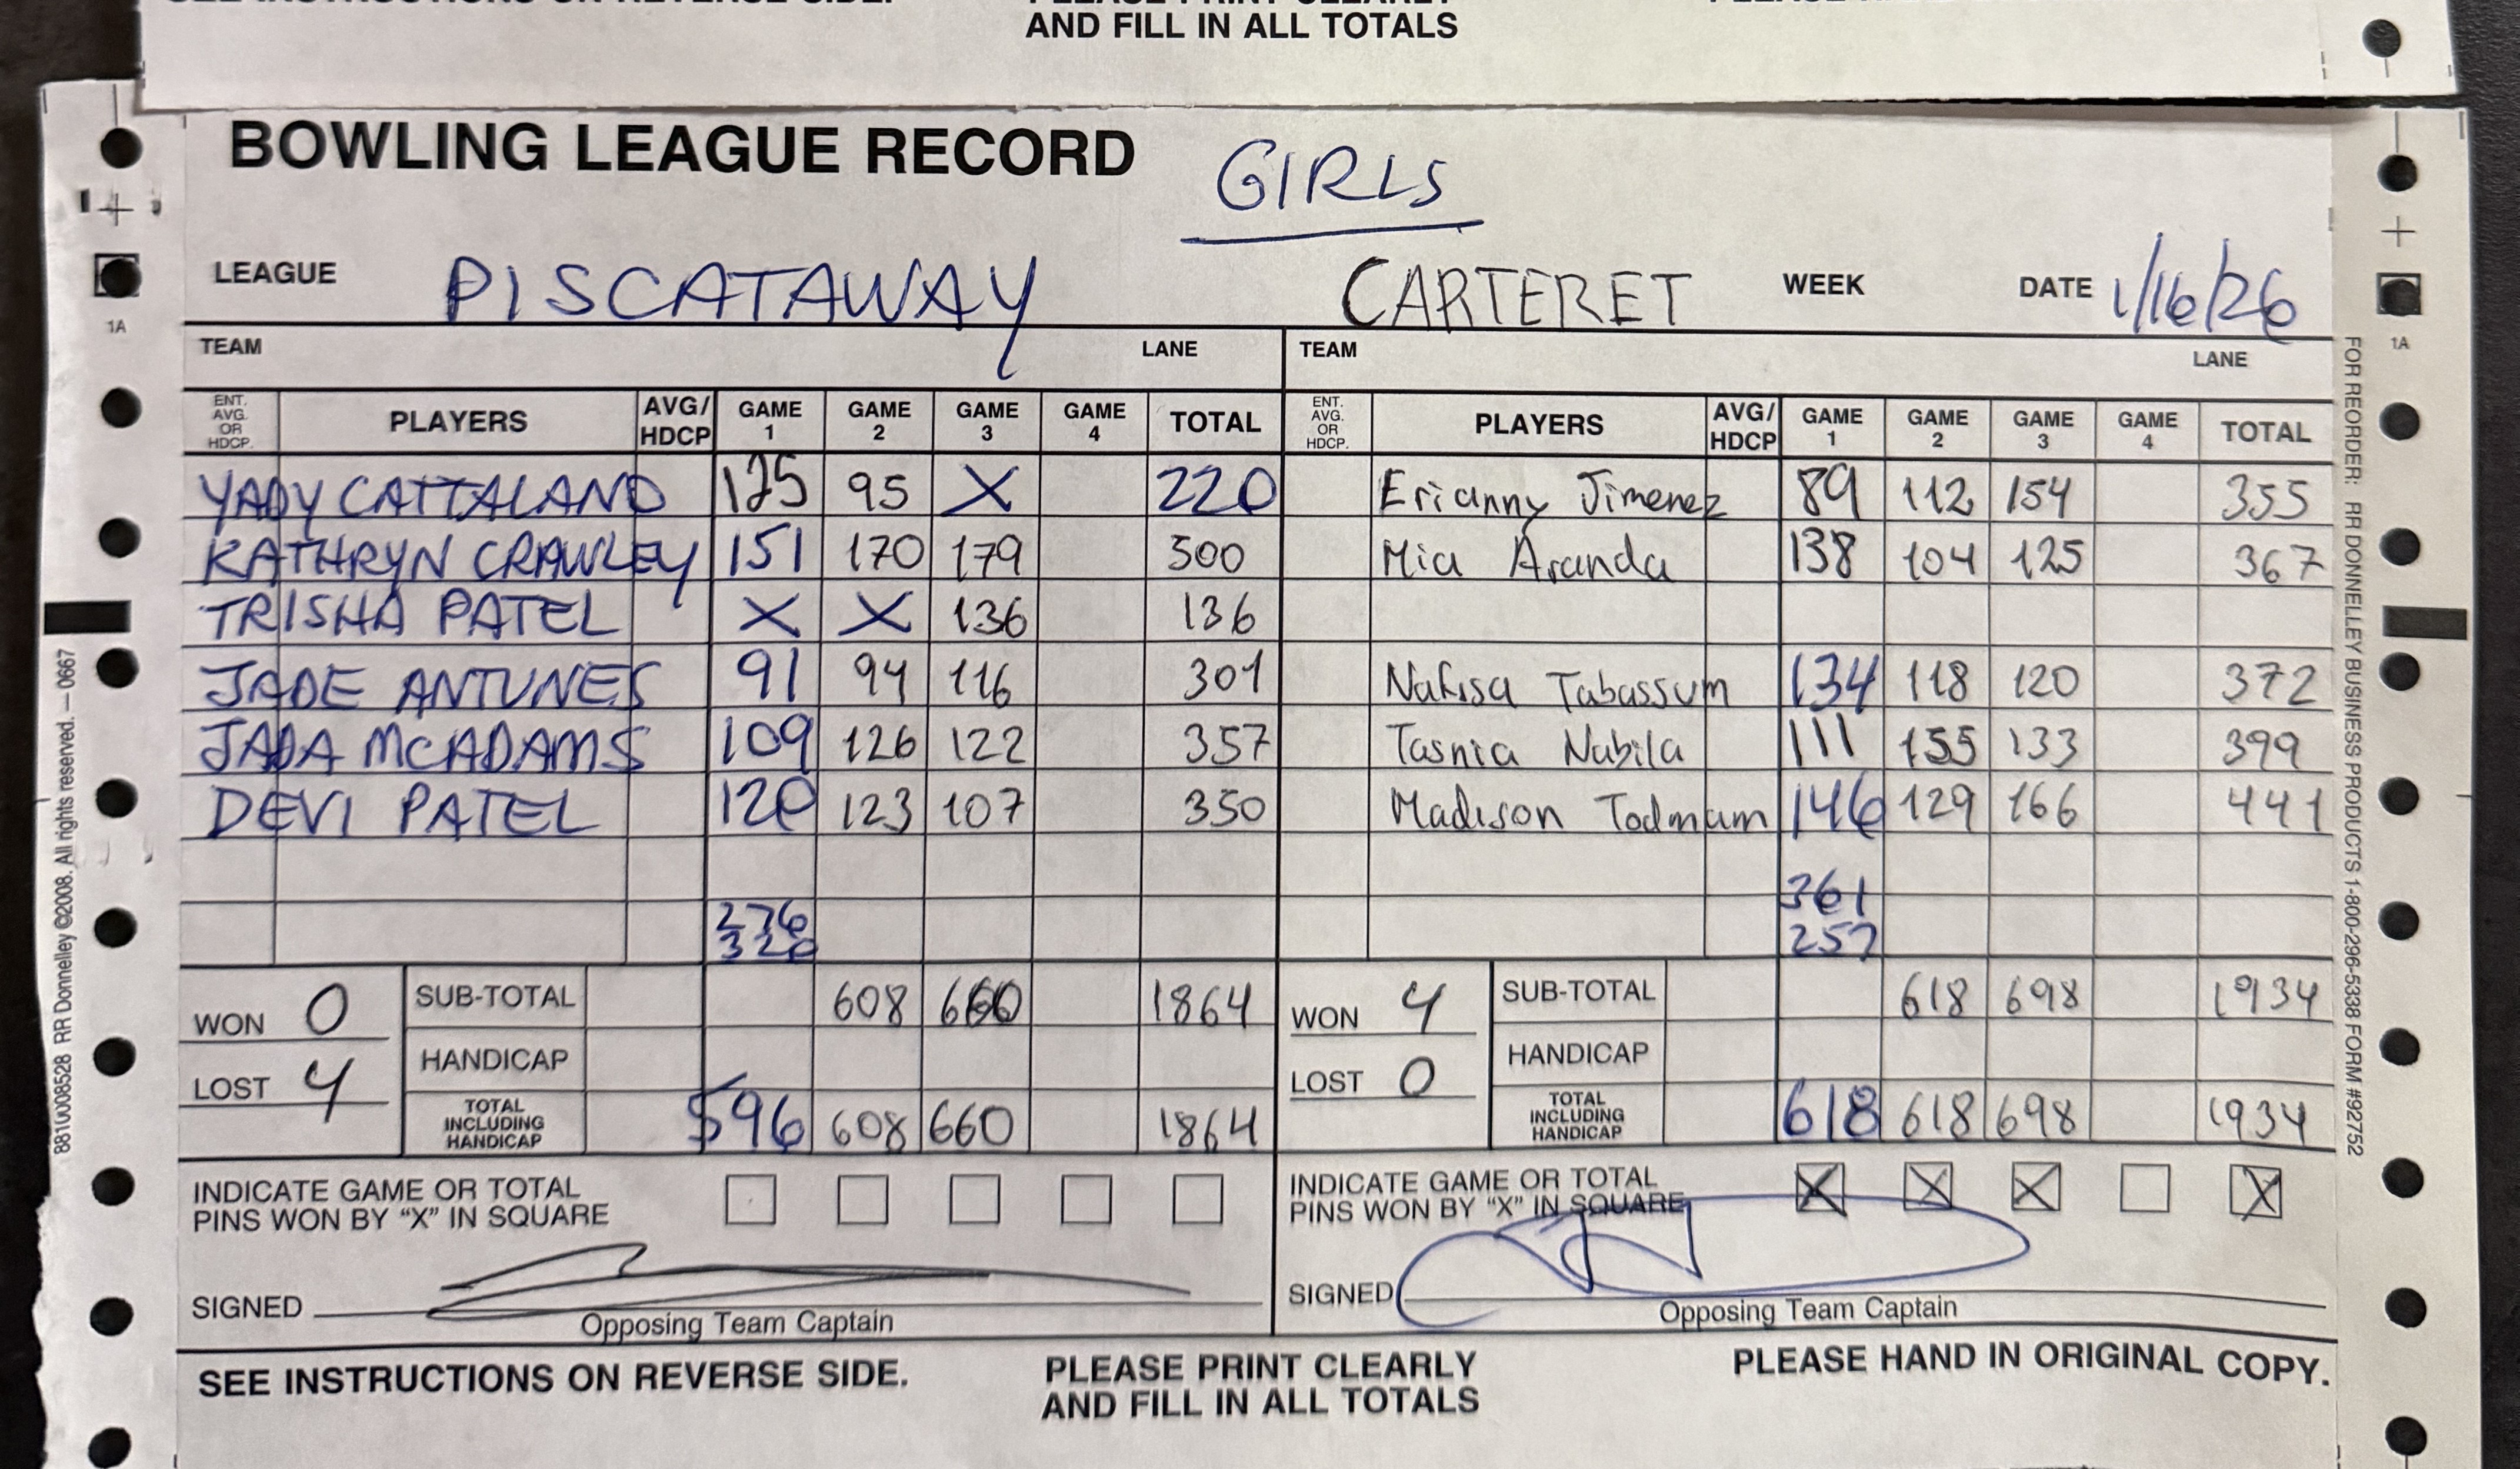 AND FILL IN ALL TOTALS
BOWLING LEAGUE RECORD GIRLS
LEAGUE PISCATAWAY CARTERET WEEK DATE 1/16/26
TEAM LANE TEAM LANE
ENT. AVG. OR HDCP. PLAYERS AVG/ HDCP GAME 1 GAME 2 GAME 3 GAME 4 TOTAL ENT. AVG. OR HDCP. PLAYERS AVG/ HDCP GAME 1 GAME 2 GAME 3 GAME 4 TOTAL
YADY CATTALANO 125 95 X 220 Erianny Jimenez 89 112 154 355
KATHRYN CRAWLEY 151 170 179 500 Mia Aranda 138 104 125 367
TRISHA PATEL X X 136 136
JADE ANTUNES 91 94 116 301 Nafisa Tabassum 134 118 120 372
JADA MCADAMS 109 126 122 357 Tasnia Nabila 111 155 133 399
DEVI PATEL 120 123 107 350 Madison Todmam 146 129 166 441
361
276
320 257
WON 0 SUB-TOTAL 608 660 1864 WON 4 SUB-TOTAL 618 698 1934
HANDICAP HANDICAP
LOST 4 TOTAL INCLUDING HANDICAP 596 608 660 1864 LOST 0 TOTAL INCLUDING HANDICAP 618 618 698 1934
INDICATE GAME OR TOTAL INDICATE GAME OR TOTAL X X X X
PINS WON BY "X" IN SQUARE PINS WON BY "X" IN SQUARE
SIGNED SIGNED
Opposing Team Captain Opposing Team Captain
SEE INSTRUCTIONS ON REVERSE SIDE. PLEASE PRINT CLEARLY PLEASE HAND IN ORIGINAL COPY.
AND FILL IN ALL TOTALS
1A
1A
8810008528 RR Donnelley ©2008. All rights reserved. — 0667
FOR REORDER: RR DONNELLEY BUSINESS PRODUCTS 1-800-296-5338 FORM #92752